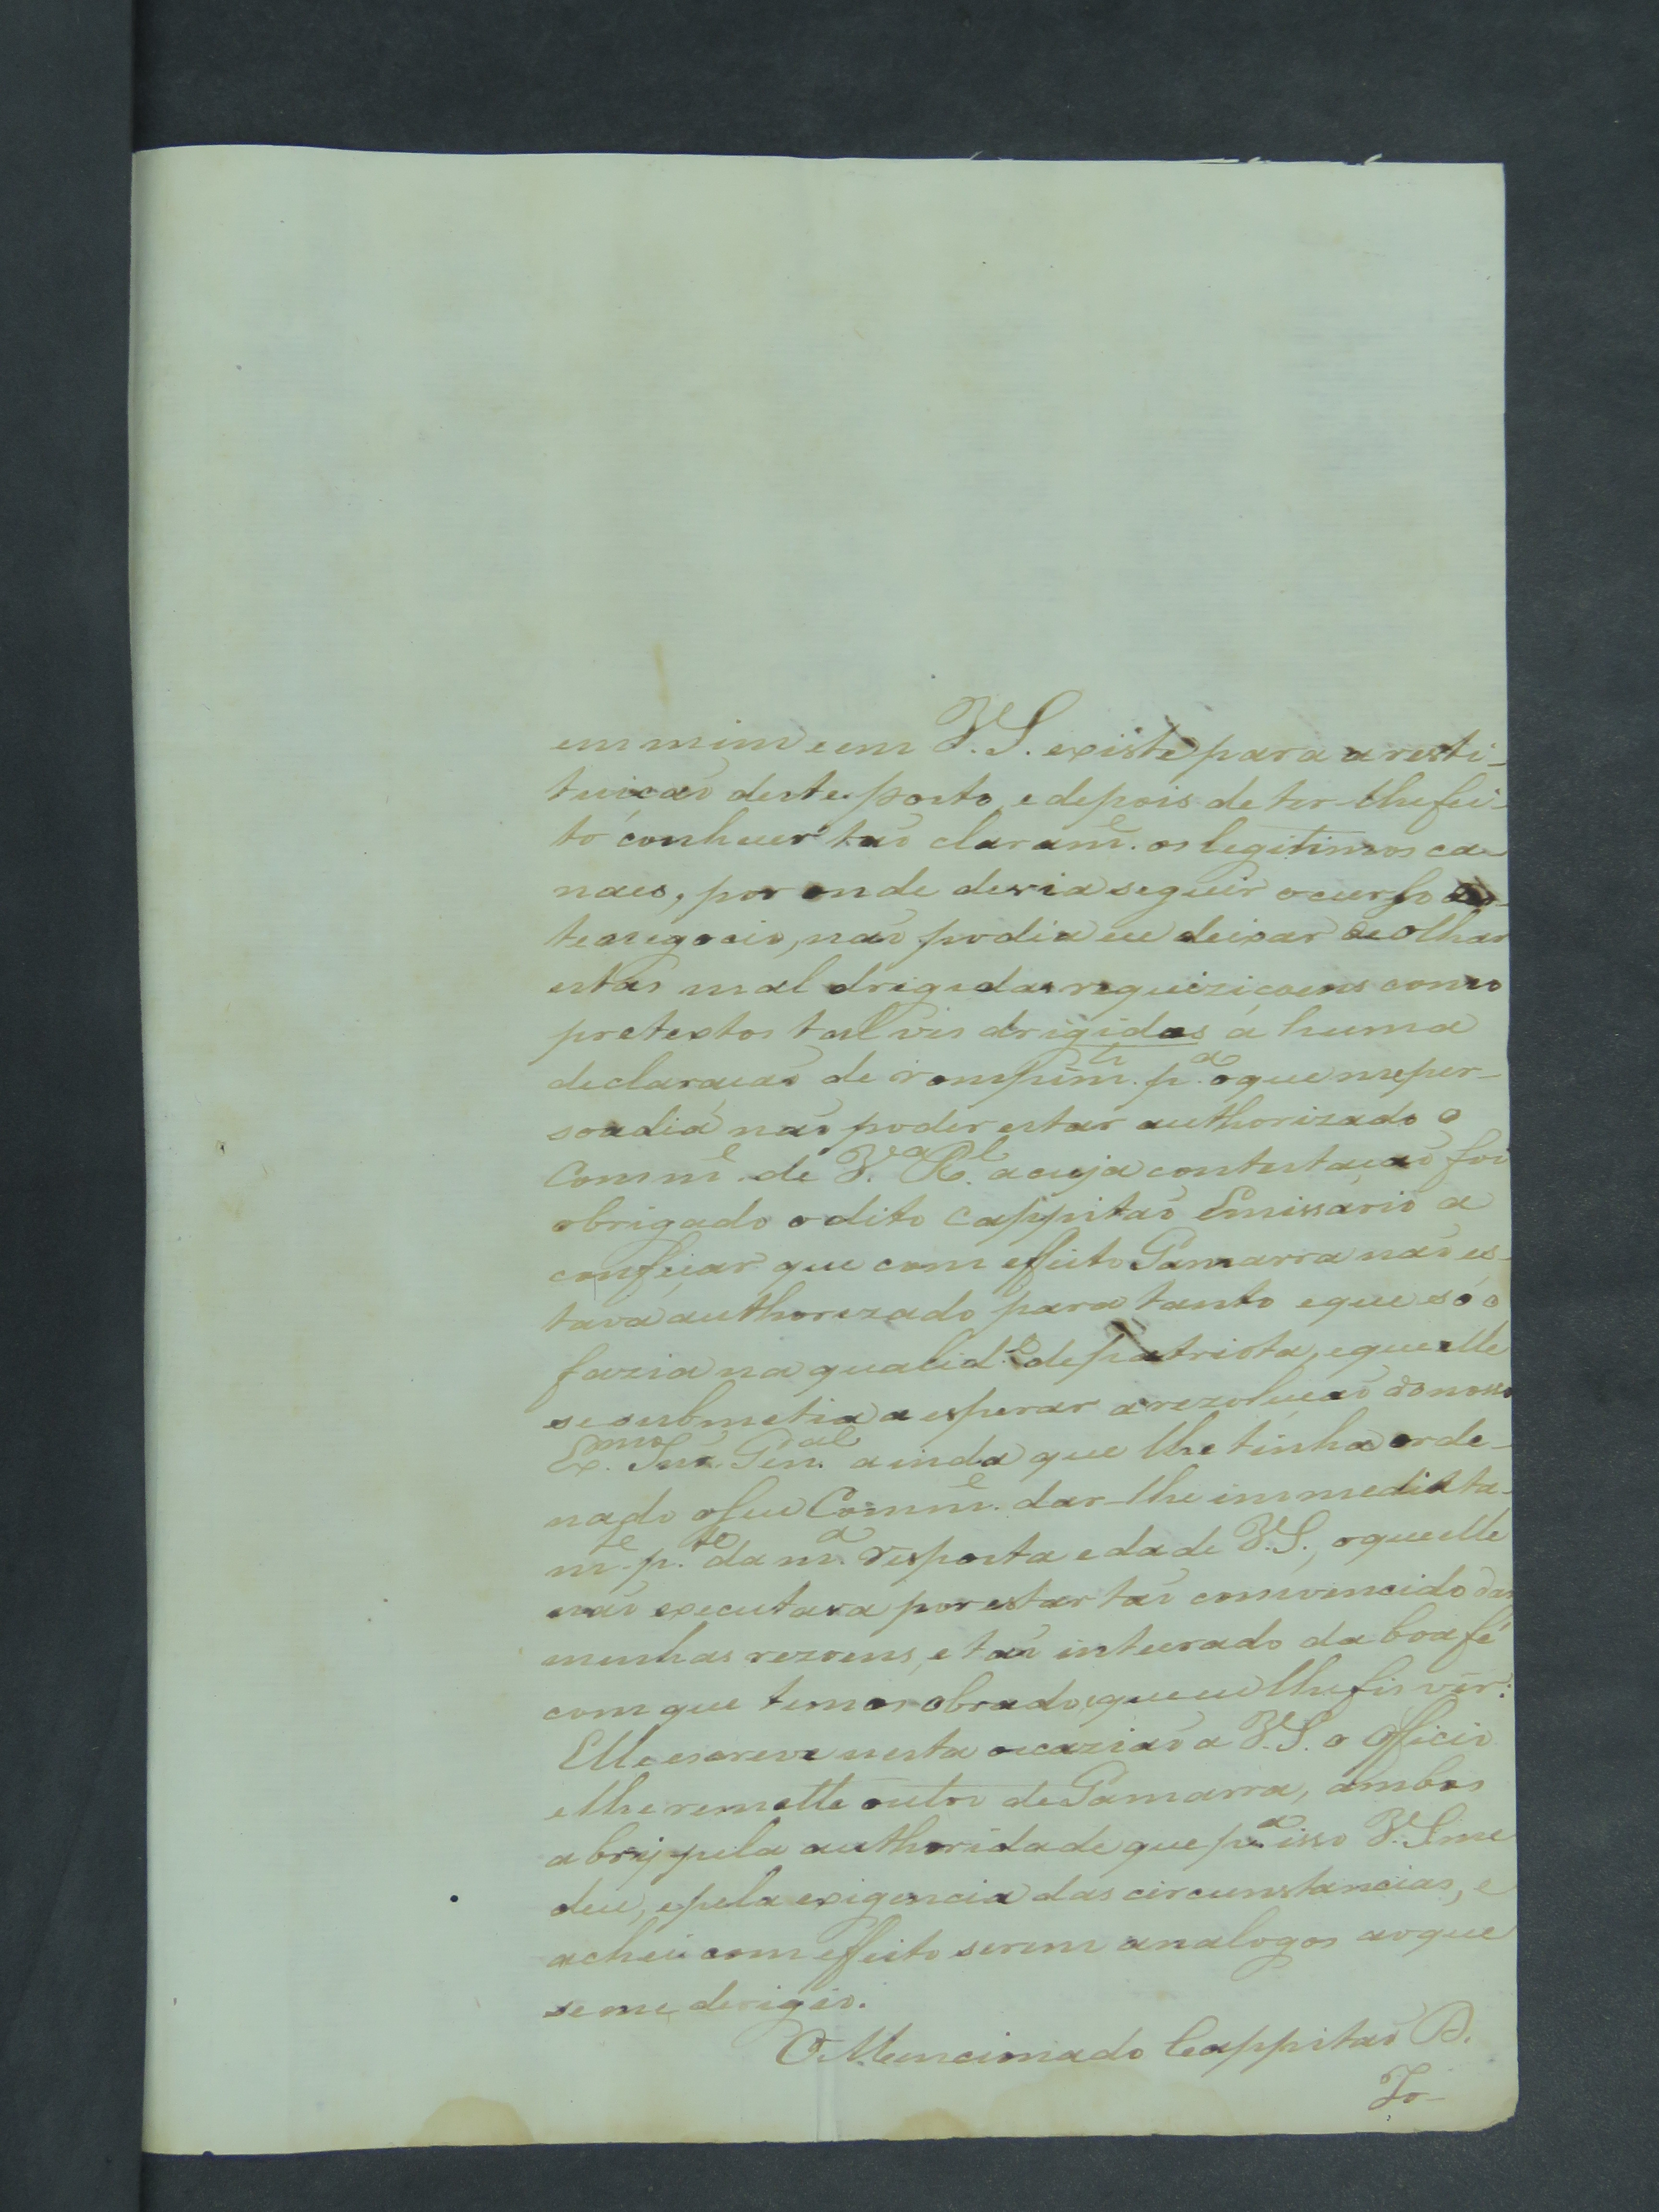 em mim e em V.S. existe para a resti-
tuicaõ deste posto, e depois de ter-lhe fei-
to conhecer taõ claram.e os legitimos ca-
naes, por onde devia seguir o curso des-
te negocio, naõ podia eu deixar de olhar
estas mal drigidas requizicoens como
pretextos talvis drigidas á huma
declaracaõ de rompim.to p.a o que me per-
soadia naõ poder estar authorizado o
Comm.e de V.a R.l a cuja contestacaõ foi
obrigado o dito Cappitaõ Emissario a
confeçar que com effeito Gamarra naõ es-
tava authorezado para tanto e que só o
fazia na qualid.e de patriota, e que elle
se submetia a esperar a rezolucaõ do nosso
Ex.mo Snr. Gen.al ainda que lhe tinha orde-
nado o seu Comm.e dar-lhe immediata-
m.te p.te da m.a resposta e da de V.S., o que elle
naõ executava por estar taõ comvencido das
minhas rezoens, e taõ inteirado da boa fé
com que temos obrado, que eu lhe fis ver:
Elle escreve nesta occaziaõ a V.S. o Officio
e lhe remette outro de Gamarra, ambos
abrij pela authoridade que p.a isso V.S. me
deu, e pela exigencia das circunstancias, e
achei com effeito serem analogos ao que
se me derigio.
O Mencionado Cappitaõ D.
Jo-